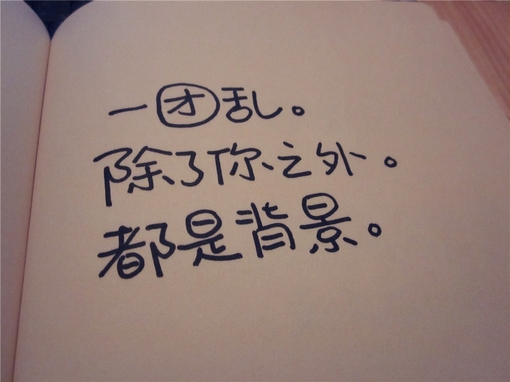 一团乱。
除了你之外。
都是背景。